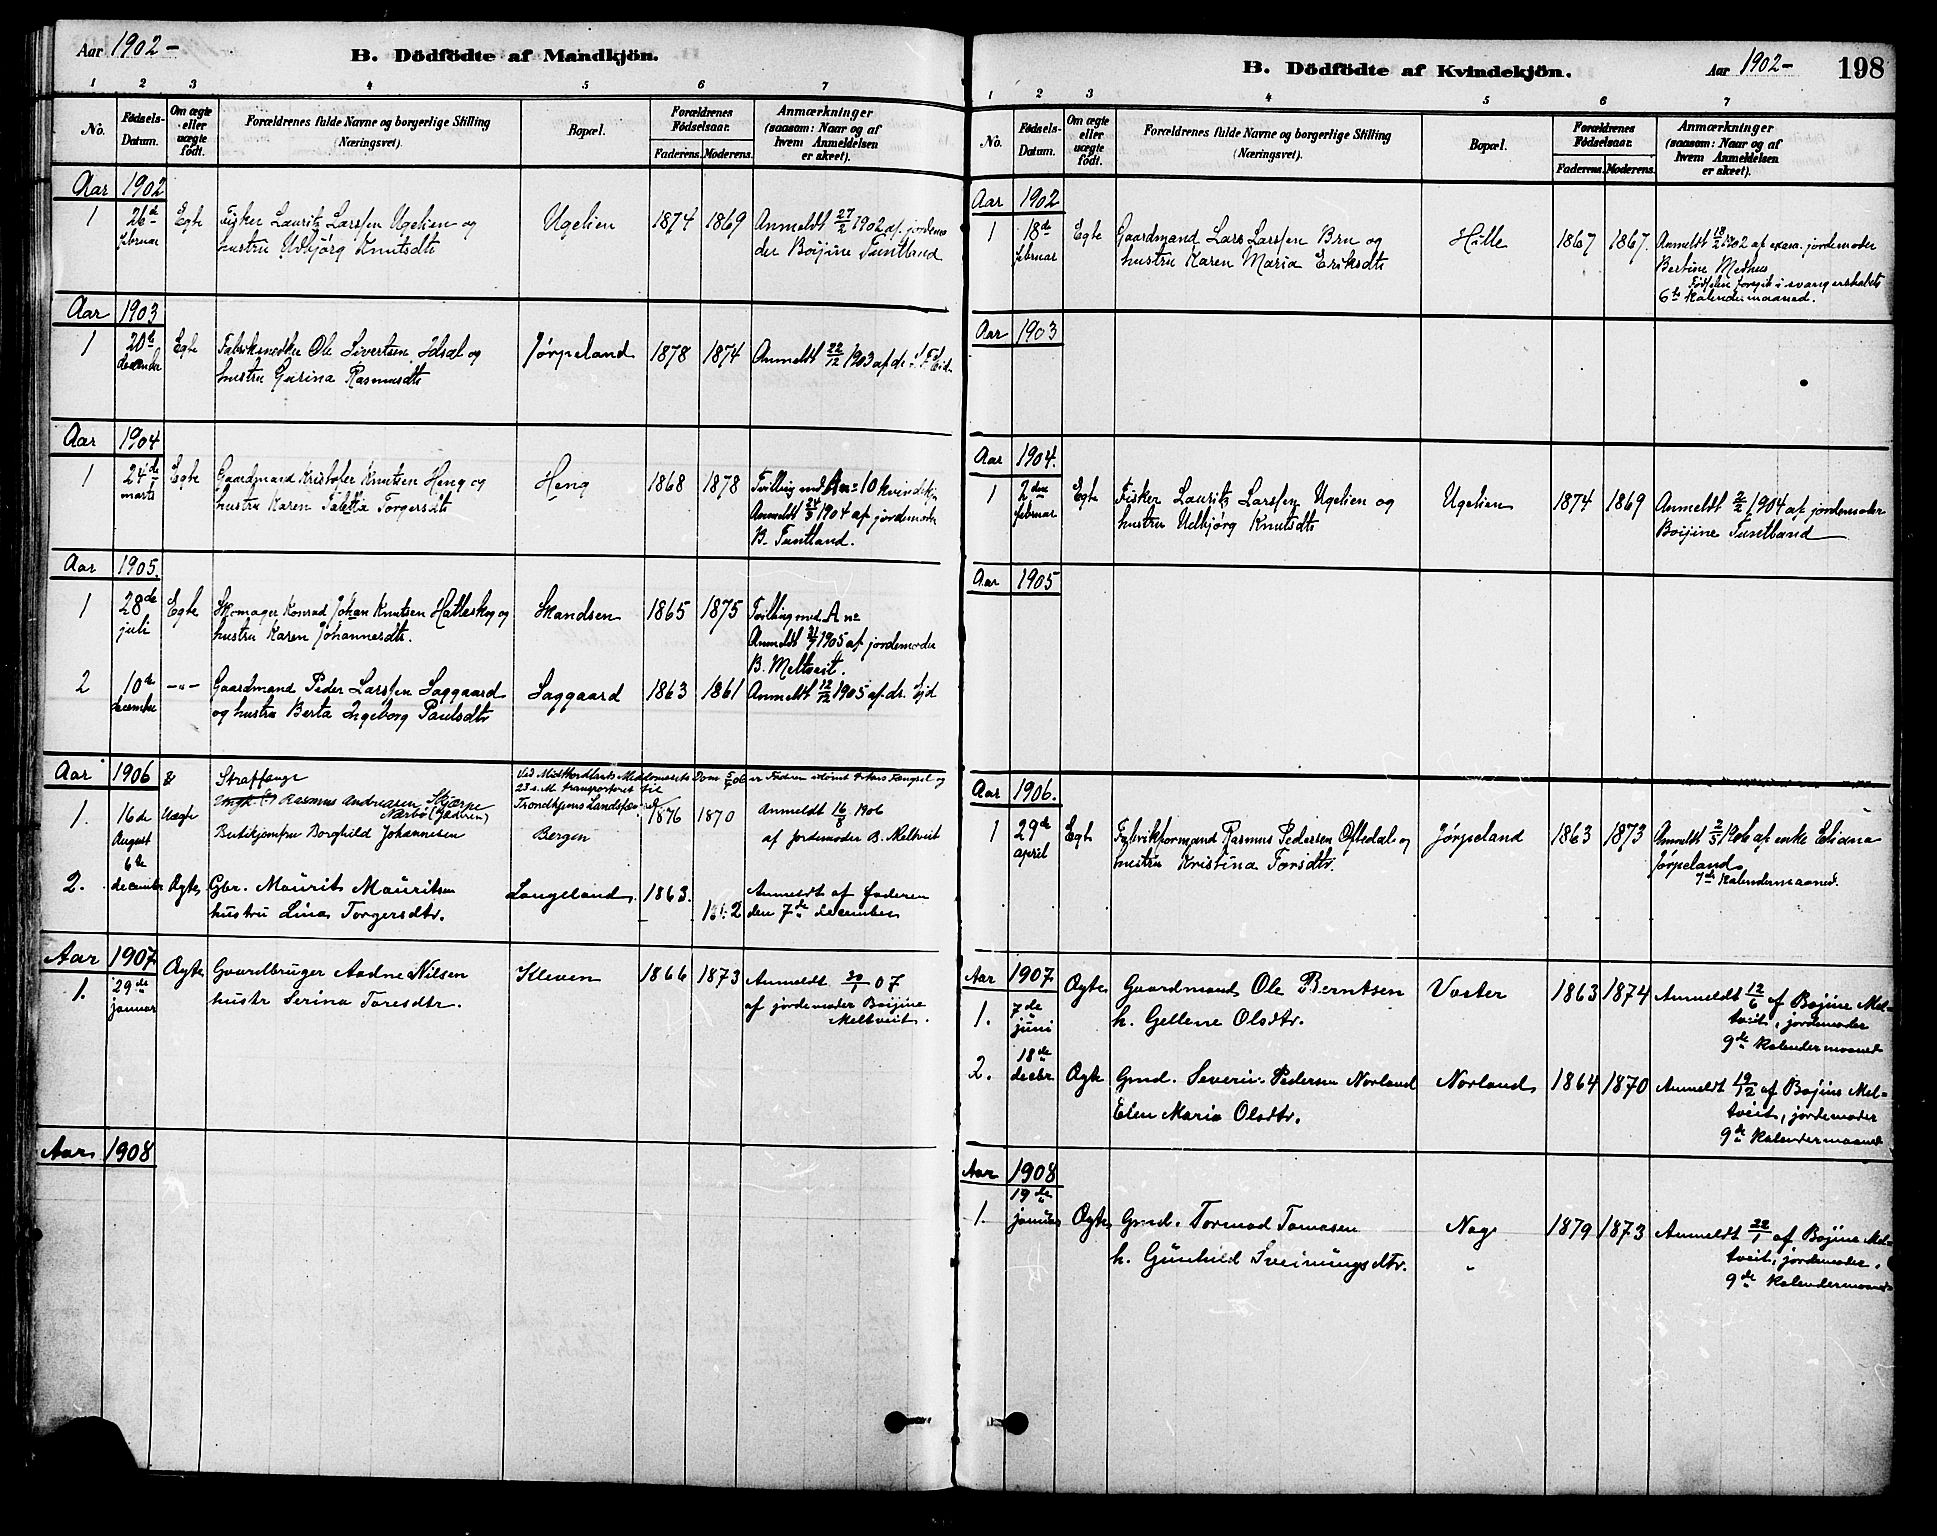 Aar 1902 –
B. Dödfödte af Mandkjön.
1 2 3 4 5 6 7
No.
Födsels-Datum.
Om ægte eller uægte födt.
Forældrenes fulde Navne og borgerlige Stilling (Næringsvei).
Bopæl.
Forældrenes Födselsaar.
Faderens. Moderens.
Anmærkninger (saasom: Naar og af hvem Anmeldelsen er skeet).
Aar 1902
1 26de februar Egte
Fisker Lauritz Larssen Ugelien og
hustru Udbjørg Knutsdtr
Ugelien 1874 1869
Anmeldt 27/2 1902 af jordemo
der Boijine Tuntland
Aar 1903
1 20de december Egte
Fabriksnedker Ole Sivertsen Idsal og
hustru Gurina Rasmusdtr
Jørpeland 1878 1874
Anmeldt 22/12 1903 af dr. Eid
Aar 1904
1 24de marts Egte
Gaardmand Kristofer Knutsen Heng og
hustru Karen Taletta Torgersdtr
Heng 1868 1878
Tvilling med An= 10 kvindekj.
Anmeldt 24/3 1904 af jordemoder
B. Tuntland.
Aar 1905.
1 28de juli Egte
Skomager Konrad Johan Knutsen Hatleskog og
hustru Karen Johannesdtr.
Skandsen 1865 1875
Tvilling med An=
Anmeldt 1905 af jordemoder
B. Meltveit.
2 10de december –"–
Gaardmand Peder Larssen Saggaard
og hustru Berta Ingeborg Paulsdtr
Saggaard 1863 1861
Anmeldt 12/12 1905 af dr. Eid
Aar 1906
1. 16de August Uægte
Straffange
Rasmus Andreasen Skjærpe
Nærbø (Jæderen)
Butikjomfru Borghild Johannesen
Ved Midthordlands Meddomsrets Dom er Faderen idømt Fængsel og
23 s. M. transporteret til
Trondhjems Landsfængsel
Bergen
1876 1870
Anmeldt 16/8 1906
af jordemoder B. Meltveit
2. 6te december Ægte
Gbr. Maurits Mauritsen
hustru Lina Torgersdtr.
Langeland 1863. 1862
Anmeldt af faderen
den 7de december
Aar 1907
1. 29de januar Ægte
Gaardbruger Aadne Nilsen
hustr Serina Taresdtr.
Kleven 1866 1873
Anmeldt 30/1 07
af jordemoder Boijine
Meltveit.
Aar 1908
B. Dödfödte af Kvindekjön.
Aar 1902 –
198
1 2 3 4 5 6 7
No.
Födsels-Datum.
Om ægte eller uægte födt.
Forældrenes fulde Navne og borgerlige Stilling (Næringsvei).
Bopæl.
Forældrenes Födselsaar.
Faderens. Moderens.
Anmærkninger (saasom: Naar og af hvem Anmeldelsen er skeet).
Aar 1902
1 18de februar Egte
Gaardmand Lars Larssen Bru og
hustru Karen Maria Eriksdtr
Hille 1867 1867.
Anmeldt 18/2 1902 af exam. jordemoder
Bertine Medhus
Fødselen foregik i svangerskabets
6te kalendermaaned.
Aar 1903
Aar 1904.
1 2den februar Egte
Fisker Lauritz Larssen Ugelien og
hustru Udbjørg Knutsdtr
Ugelien 1874 1869
Anmeldt 2/2 1904 af jordemoder
Boijine Tuntland
Aar 1905
Aar 1906.
1 29de april Egte
Fabrikformand Rasmus Pedersen Oftedal og
hustru Kristina Torsdtr.
Jørpeland 1863 1873
Anmeldt 2/5 1906 af enke Eliana
Jørpeland
7de kalendermaaned.
Aar 1907
1. 7de juni Ægte
Gaardmand Ole Berntsen
h. Gellene Olsdtr.
Vaster 1863 1874
Anmeldt 12/6 af Bojine Mel=
tveit, jordemoder
9de kalendermaaned
2. 18de decbr. Ægte
Gmd. Severin Pedersen Norland
Elen Maria Olsdtr.
Norland 1864 1870
Anmeldt 19/12 af Bojine Mel=
tveit, jordemoder
9de kalendermaaned
Aar 1908
1. 19de januar Ægte
Gmd. Tormod Tomasen
h. Gunhild Sveinungsdtr.
Nag 1879 1873
"
Anmeldt 22/1 af Bojine Mel=
tveit, jordemoder.
9de kalendermaaned